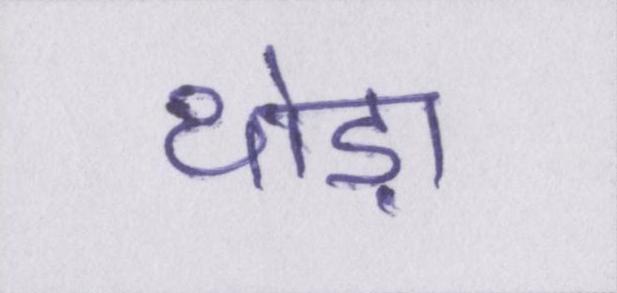 थोड़ा